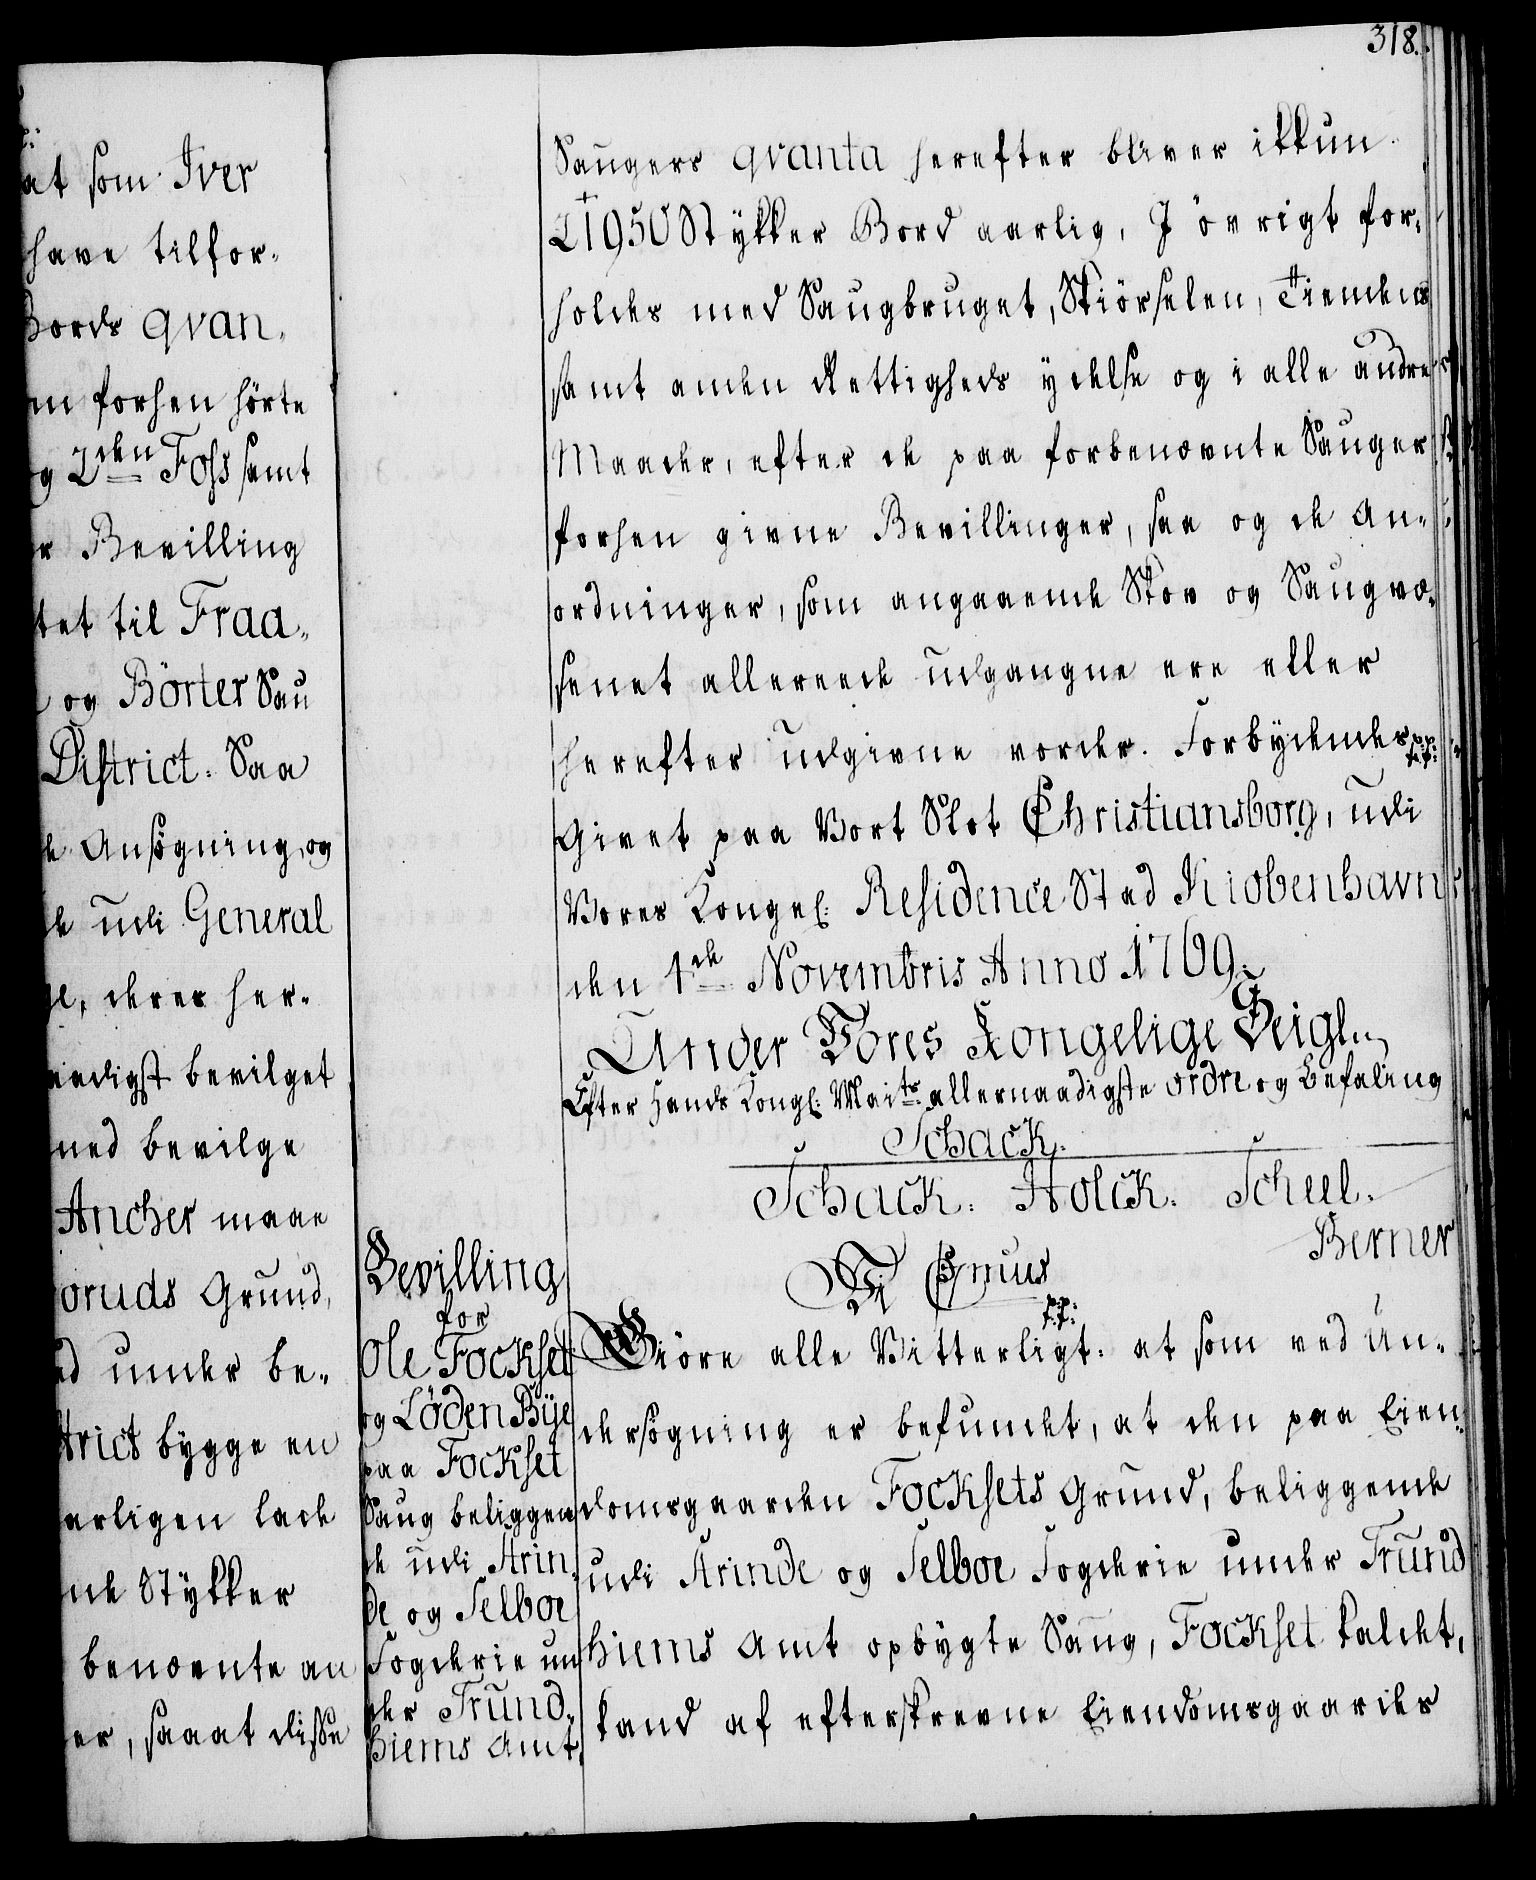 318.
at som Iver
have tilfor-
Bords qvan-
m forhen hörte
og 2den Foss samt
r Bevilling
tet til Fraa-
og Börter Sau
District. Saa
e Ansögning, og
de udi General
ge, deres her-
aadigst bevilget
med bevilge
Ancher maae
oruds Grund,
ed under be-
trict bygge en
arligen lade
ne Stykker
benævnte an
er, saaat disse
Saugers qvanta herefter bliver ikkun
21950 Stykker Bord aarlig, I övrigt for-
holdes med Saugbruget, Skiörselen, Tiendens
samt anden Rettigheds ydelse og i alle andre
Maader, efter de paa forbenævnte Sauger
forhen givne Bevillinger, saa og de An-
ordninger, som angaaende Skov og Saugvæ-
senet allereede udgangne ere eller
herefter udgivne vorder. Forbydendes p:p:
Givet paa Vort Slot Christiansborg, udi
Vores Kongel: Residence Stad Kiobenhavn
den 1de Novembris Anno 1769.
Under Vores Kongelige Seigl.
Efter Hands Kongl: Maits allernaadigste ordre og Befaling
Schack.
Schack. Holck. Scheel.
Berner
Bevilling
for
Ole Fockset
og Löden Bye
paa Fockset
Saug beliggen
de udi Strin
de og Selboe
Fogderie un
der Trund-
hiems Amt.
Vi C 7mus
Giöre alle Vitterligt p:p: at som ved Un-
dersögning er befundet, at den paa Eien-
domsgaarden Focksets Grund, beliggende
udi Strinde og Selboe Fogderie under Trund
hiems Amt opbygte Saug, Fockset kaldet,
kand af efterskrevne Eiendomsgaardes